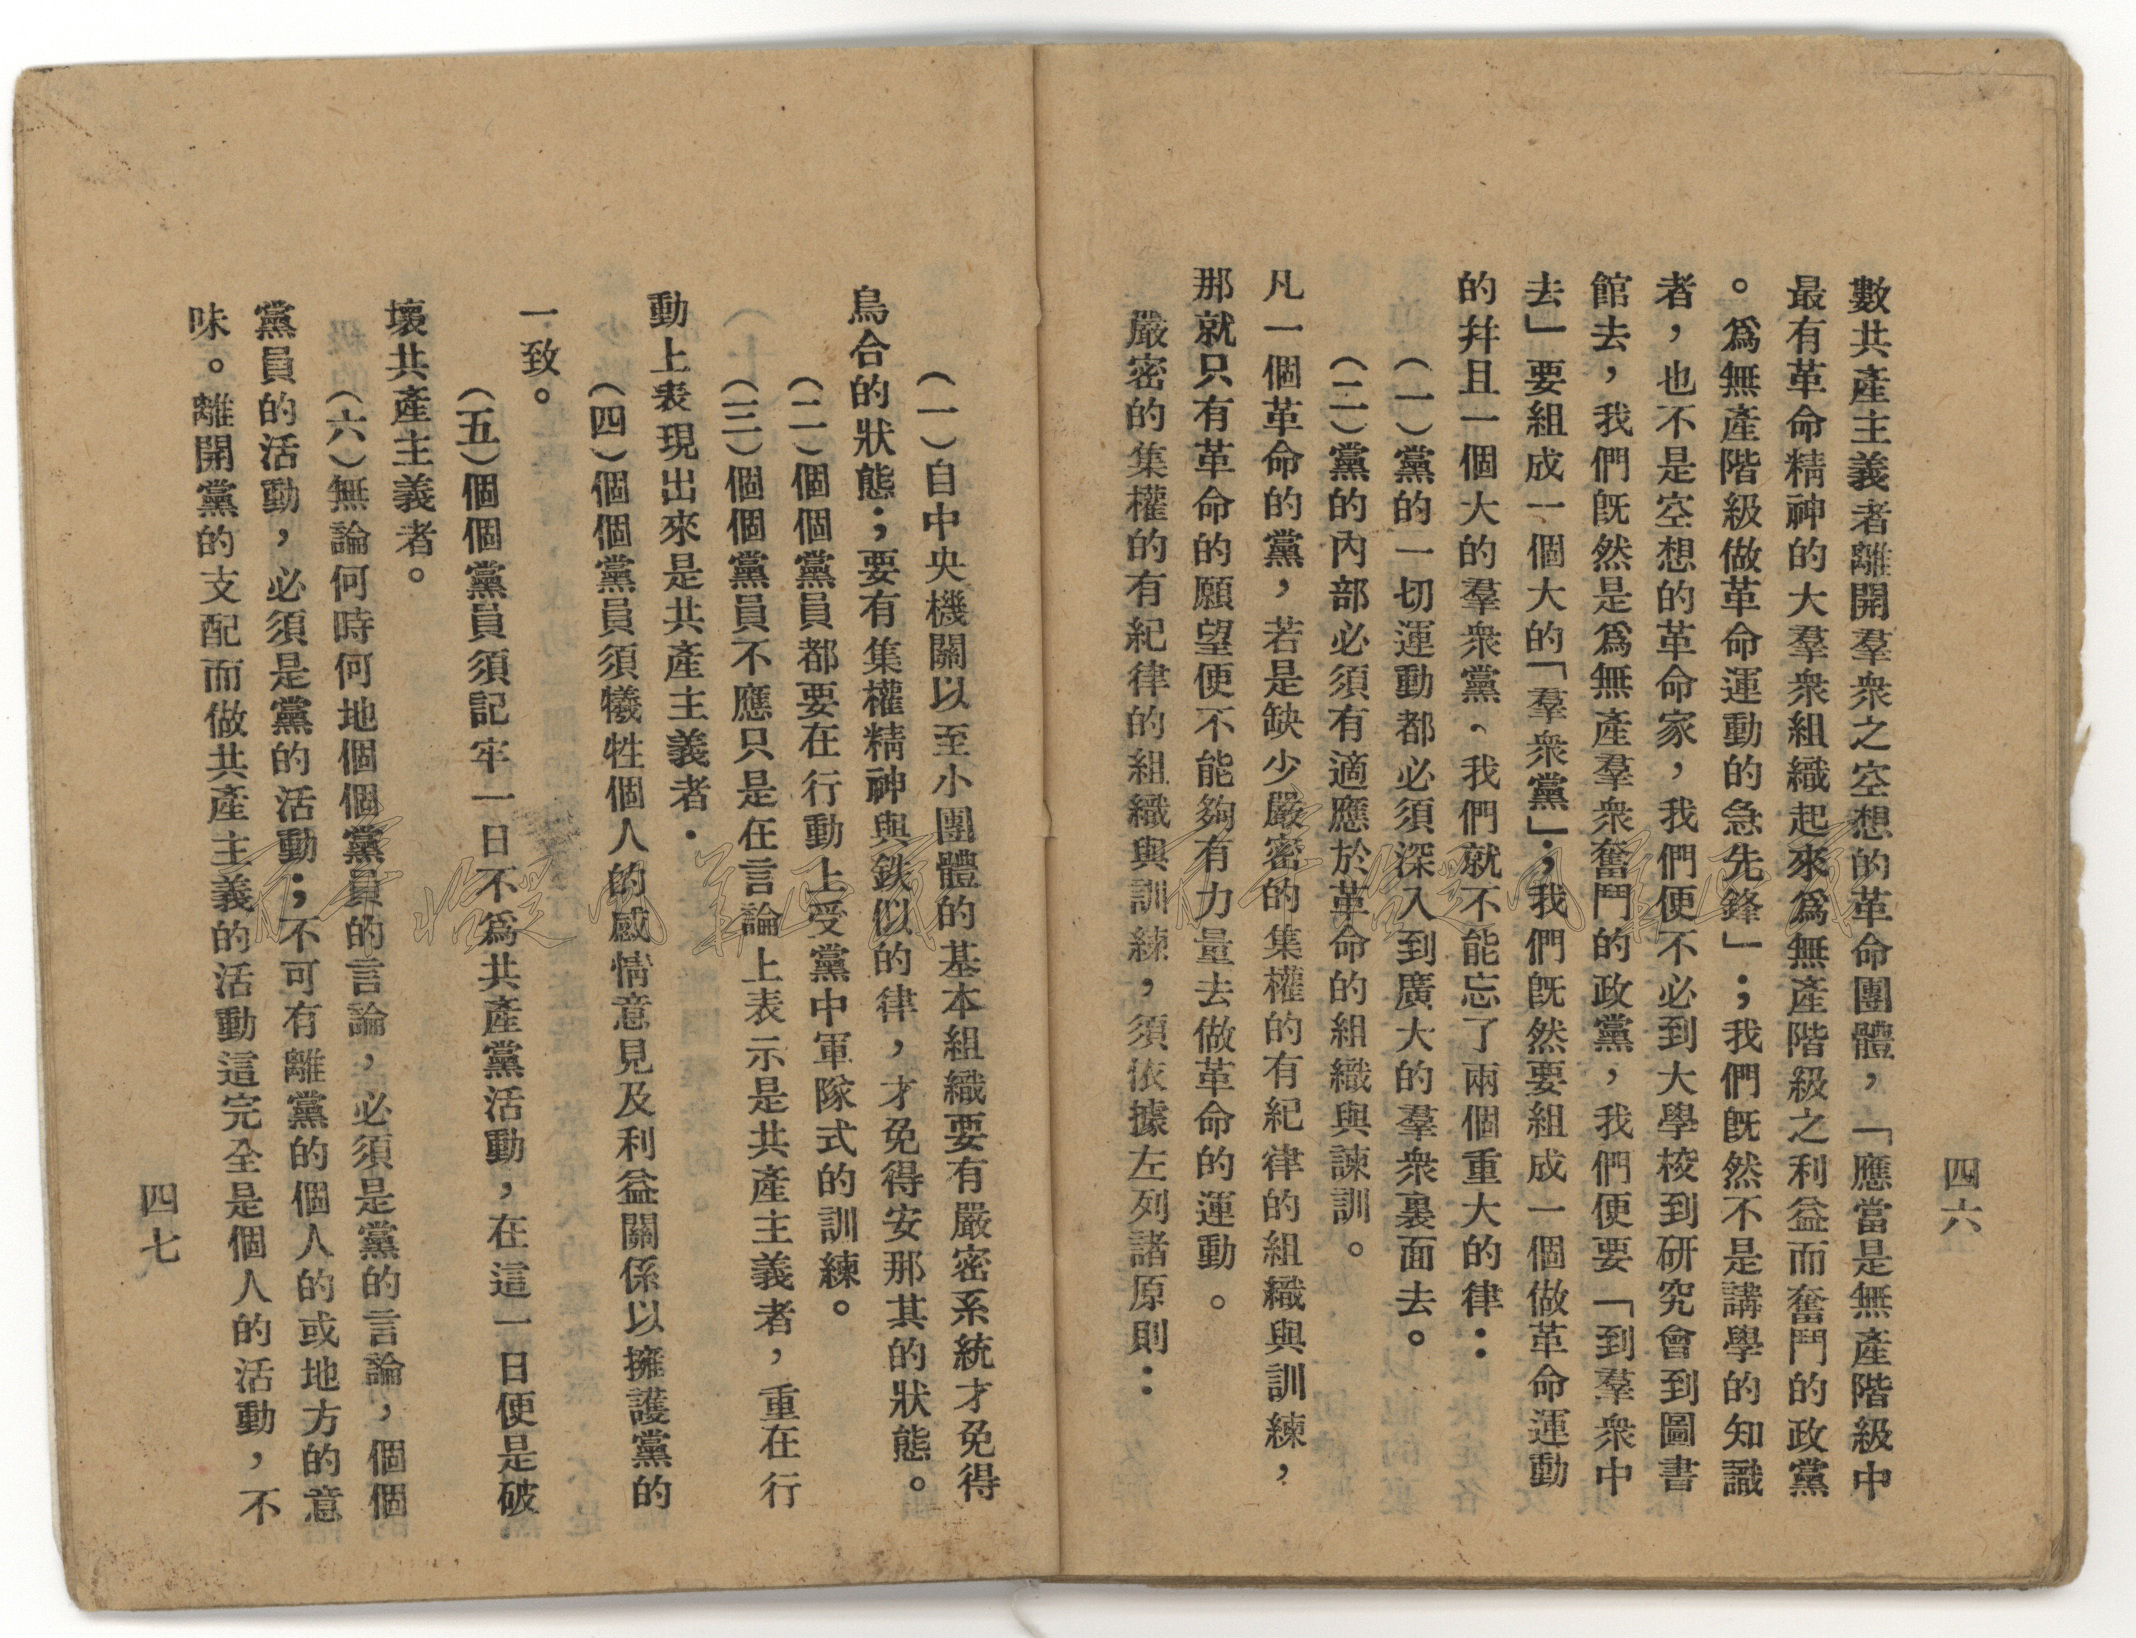 四六
數共產主義者離開羣衆之空想的革命團體，「應當是無產階級中
最有革命精神的大羣衆組織起來爲無產階級之利益而奮鬥的政黨
。爲無產階級做革命運動的急先鋒」；我們旣然不是講學的知識
者，也不是空想的革命家，我們便不必到大學校到研究會到圖書
館去，我們旣然是爲無產羣衆奮鬥的政黨，我們便要「到羣衆中
去」要組成一個大的「羣衆黨」；我們旣然要組成一個做革命運動
的幷且一個大的羣衆黨、我們就不能忘了兩個重大的律：
（一）黨的一切運動都必須深入到廣大的羣衆裏面去。
（二）黨的內部必須有適應於革命的組織與諫訓。
凡一個革命的黨，若是缺少嚴密的集權的有紀律的組織與訓練，
那就只有革命的願望便不能夠有力量去做革命的運動。
嚴密的集權的有紀律的組織與訓練，須依據左列諸原則：
（一）自中央機關以至小團體的基本組織要有嚴密系統才免得
烏合的狀態；要有集權精神與鉄似的律，才免得安那其的狀態。
（二）個個黨員都要在行動上受黨中軍隊式的訓練。
（三）個個黨員不應只是在言論上表示是共產主義者，重在行
動上表現出來是共產主義者．
（四）個個黨員須犧牲個人的感情意見及利益關係以擁護黨的
一致。
（五）個個黨員須記牢一日不爲共產黨活動，在這一日便是破
壞共產主義者。
（六）無論何時何地個個黨員的言論，必須是黨的言論，個個
黨員的活動，必須是黨的活動；不可有離黨的個人的或地方的意
味。離開黨的支配而做共產主義的活動這完全是個人的活動，不
四七